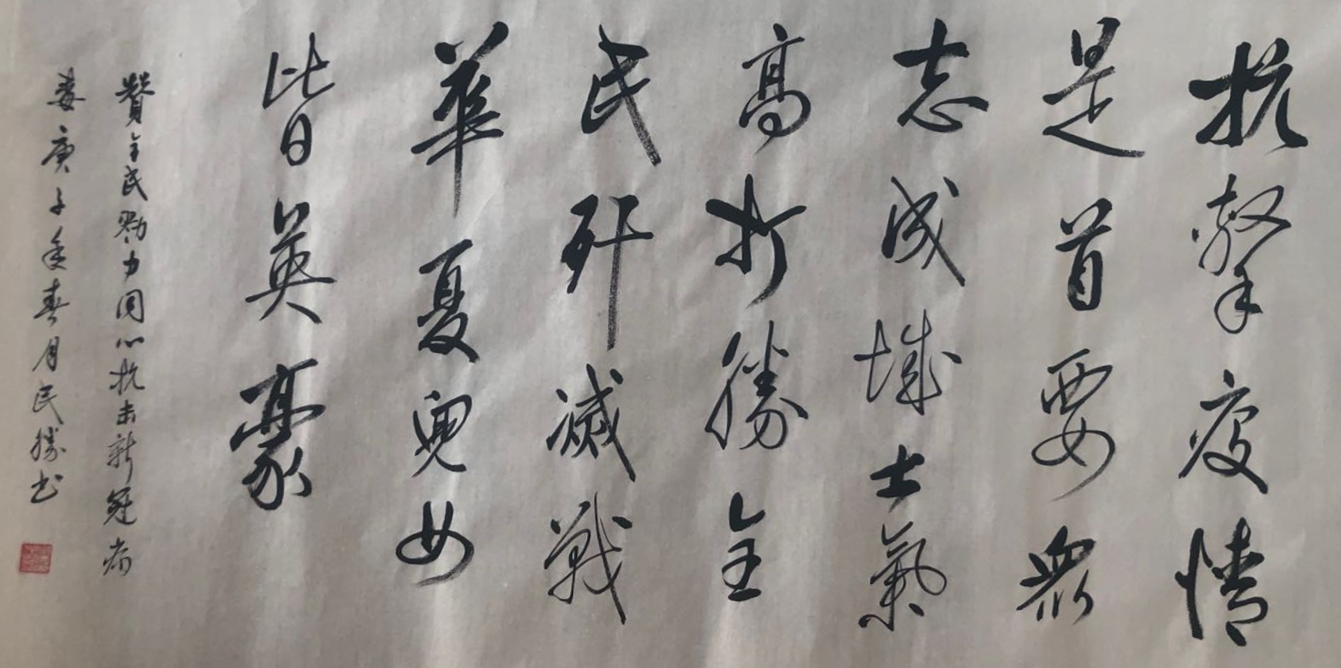 抗擊疫情
是首要衆
志成城士氣
高打勝全
民歼滅戰
華夏兒女
皆英豪
贊全民勠力同心抗击新冠病
毒庚子年春月民勝书